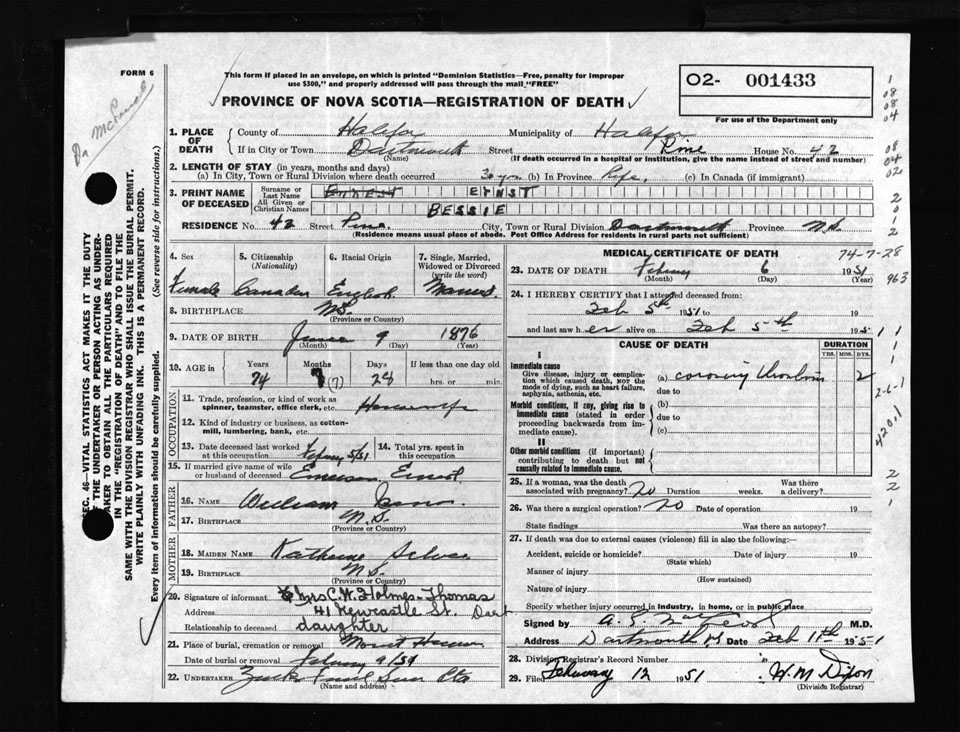 FORM 6
This form if placed in an envelope, on which is printed "Dominion Statistics—Free, penalty for improper
use $300," and properly addressed will pass through the mail "FREE"
PROVINCE OF NOVA SCOTIA—REGISTRATION OF DEATH
O2- 001433
For use of the Department only
1. PLACE OF DEATH
County of Halifax Municipality of Halifax
If in City or Town Dartmouth Street Pine House No. 42
(Name) (If death occurred in a hospital or institution, give the name instead of street and number)
2. LENGTH OF STAY (in years, months and days)
(a) In City, Town or Rural Division where death occurred 30 yrs. (b) In Province Life. (c) In Canada (if immigrant)
3. PRINT NAME OF DECEASED
Surname or Last Name ERNST
All Given or Christian Names BESSIE
RESIDENCE No. 42 Street Pine City, Town or Rural Division Dartmouth Province N.S.
(Residence means usual place of abode. Post Office Address for residents in rural parts not sufficient)
4. Sex 5. Citizenship (Nationality) 6. Racial Origin 7. Single, Married, Widowed or Divorced (write the word)
Female Canadian English Married
8. BIRTHPLACE N.S.
(Province or Country)
9. DATE OF BIRTH June 9 1876
(Month) (Day) (Year)
10. AGE in Years Months Days If less than one day old
74 7 (7) 28 hrs. or min.
OCCUPATION
11. Trade, profession, or kind of work as spinner, teamster, office clerk, etc. Housewife
12. Kind of industry or business, as cotton-mill, lumbering, bank, etc.
13. Date deceased last worked at this occupation 14. Total yrs. spent in this occupation
15. If married give name of wife or husband of deceased Emerson Ernst
FATHER
16. NAME William
17. BIRTHPLACE N.S.
MOTHER
18. MAIDEN NAME Katherine
19. BIRTHPLACE N.S.
(Province or Country)
20. Signature of informant Mrs C. W. Holmes-Thomas
Address 41 Newcastle St. Dart
Relationship to deceased daughter
21. Place of burial, cremation or removal Mount
Date of burial or removal
22. UNDERTAKER
(Name and address)
MEDICAL CERTIFICATE OF DEATH
74-7-28
23. DATE OF DEATH 6 1951
(Month) (Day) (Year)
963
24. I HEREBY CERTIFY that I attended deceased from:
Feb 5th 1951 to 19
and last saw her alive on Feb 5-th 195
CAUSE OF DEATH
DURATION
YRS. MOS. DYS.
I
Immediate cause
Give disease, injury or complication which caused death, NOT the mode of dying, such as heart failure, asphyxia, asthenia, etc.
(a) coronary thrombosis 2
due to
Morbid conditions, if any, giving rise to immediate cause (stated in order proceeding backwards from immediate cause).
(b)
due to
(c)
II
Other morbid conditions (if important) contributing to death but not causally related to immediate cause.
2-6-1
4201
25. If a woman, was the death associated with pregnancy? no Duration weeks. Was there a delivery?
26. Was there a surgical operation? no Date of operation 19
State findings Was there an autopsy?
27. If death was due to external causes (violence) fill in also the following:—
Accident, suicide or homicide? Date of injury 19
(State which)
Manner of injury
(How sustained)
Nature of injury
Specify whether injury occurred in industry, in home, or in public place
Signed by M.D.
Address Dartmouth Date Feb 11th 1951
28. Division Registrar's Record Number
29. Filed February 12 1951 H. M. Dixon
(Division Registrar)
SEC. 46—VITAL STATISTICS ACT MAKES IT THE DUTY
OF THE UNDERTAKER OR PERSON ACTING AS UNDER-
TAKER TO OBTAIN ALL THE PARTICULARS REQUIRED
IN THE "REGISTRATION OF DEATH" AND TO FILE THE
SAME WITH THE DIVISION REGISTRAR WHO SHALL ISSUE THE BURIAL PERMIT.
WRITE PLAINLY WITH UNFADING INK. THIS IS A PERMANENT RECORD.
Every item of information should be carefully supplied. (See reverse side for instructions.)